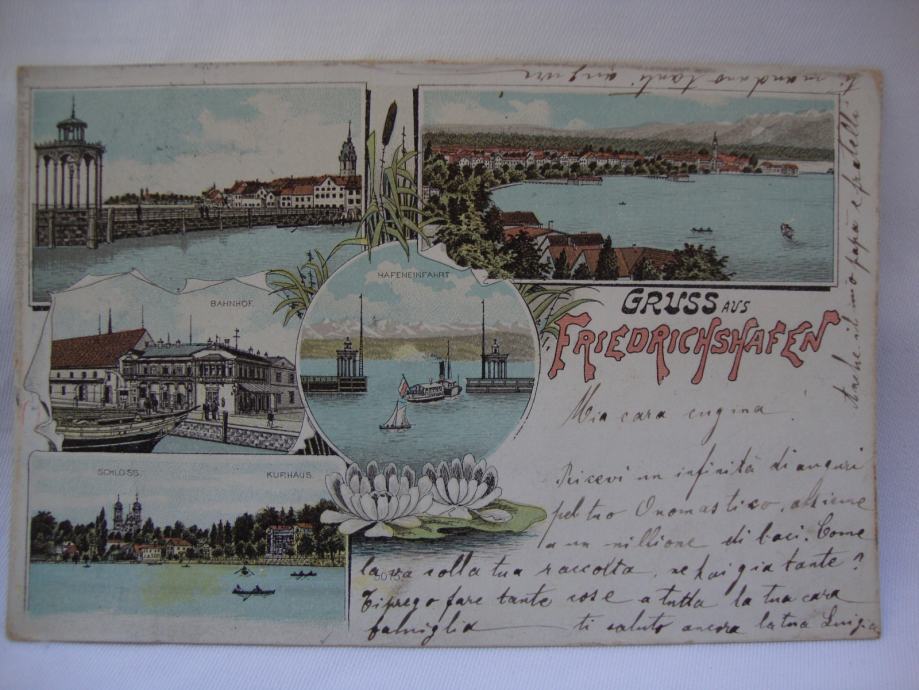 HAFENEINFAHRT
BAHNHOF.
SCHLOSS.
KURHAUS.
GRUSS AUS
FRIEDRICHSHAFEN
Mia cara cugina!
Ricevi un infinità di auguri
pel tuo Onomastico, assieme
a un millione di baci. Come
la va colla tua raccolta, ne hai gia tante?
Ti prego fare tante cose a tutta la tua cara
famiglia ti saluto ancora la tua Luigia
Anche il mio papà e fratelli
ti mandano tanti auguri